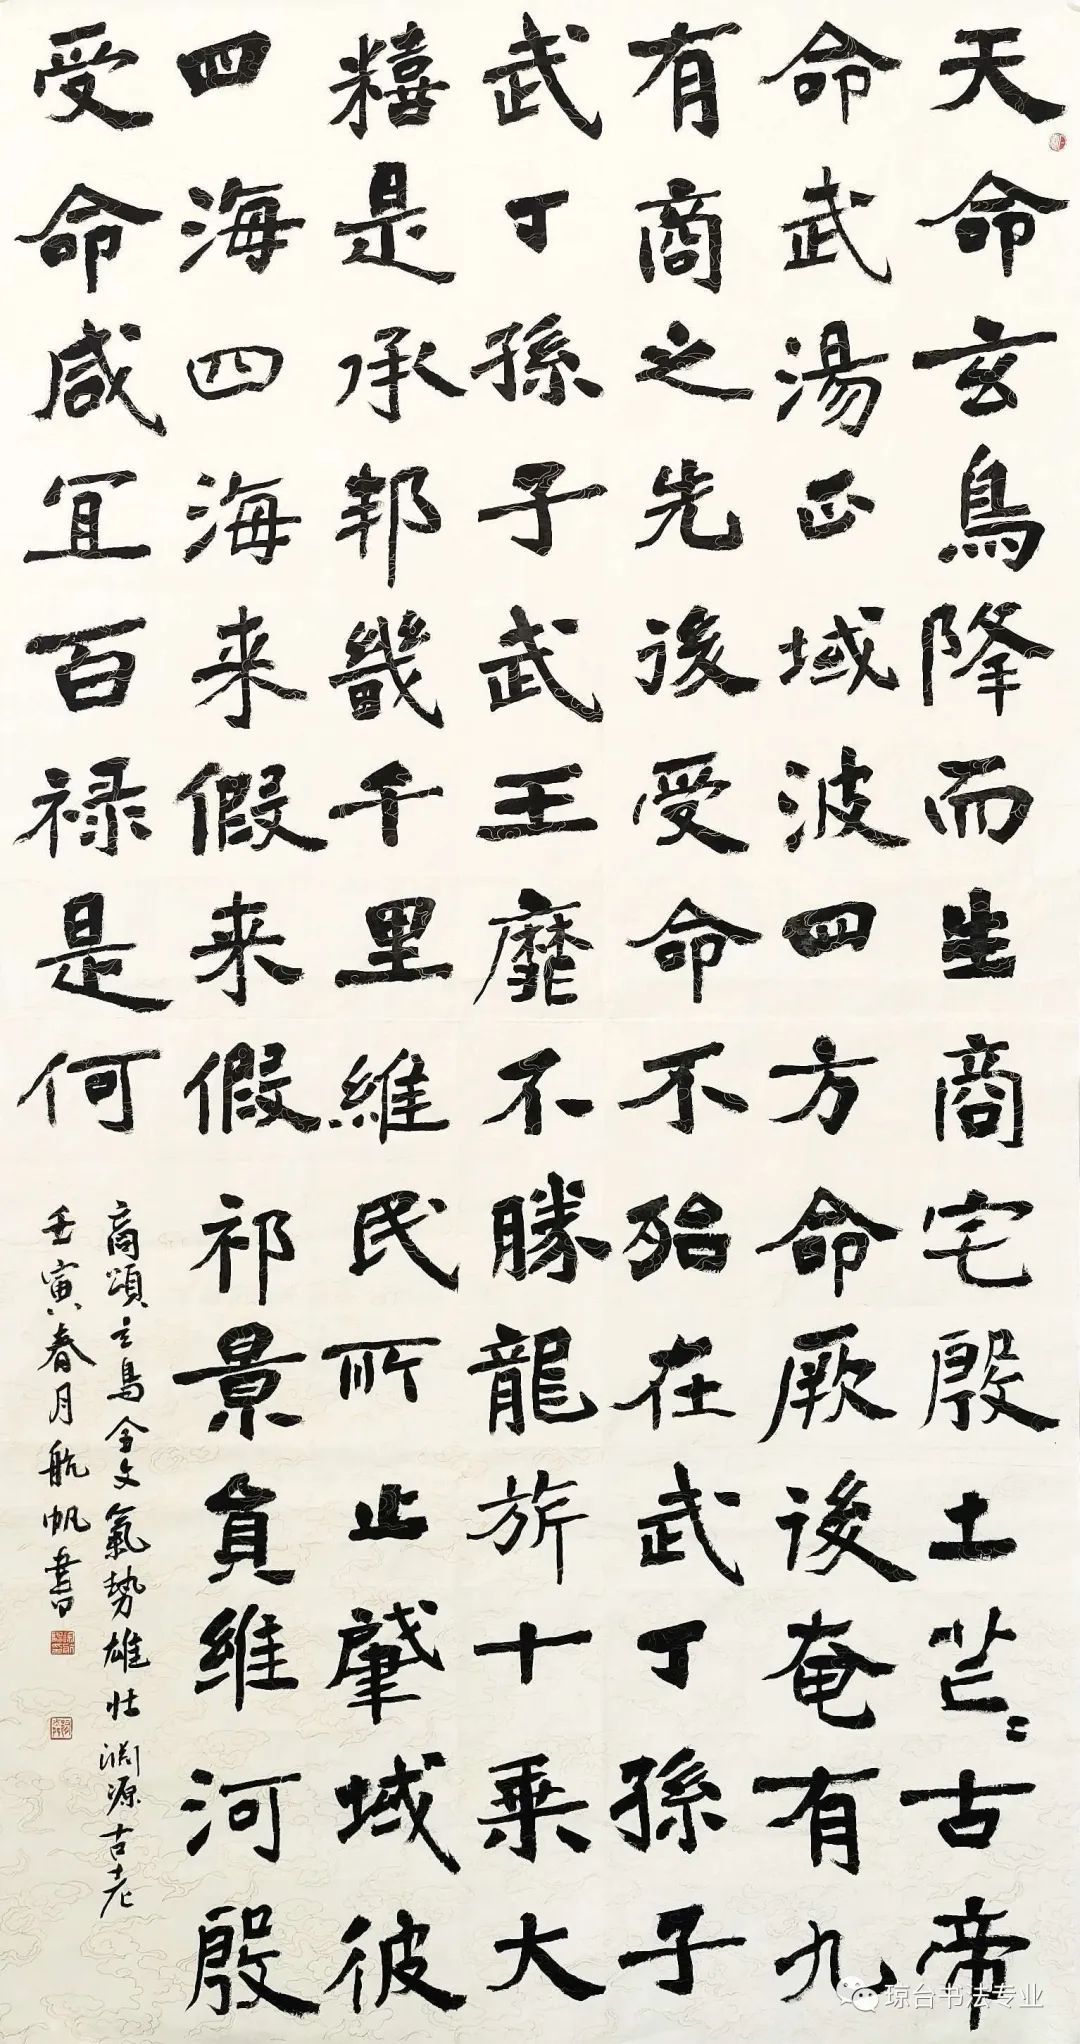 天命玄鳥降而生商宅殷土芒〻古帝
命武湯正域波四方命厥後奄有九
有商之先後受命不殆在武丁孫子
武丁孫子武王靡不勝龍旂十乘大
糦是承邦畿千里維民所止肇域彼
四海四海来假来假祁景員維河殷
受命咸宜百禄是何
商頌玄鳥全文氣勢雄壮渊源古老
壬寅春月航帆書
琼台书法专业